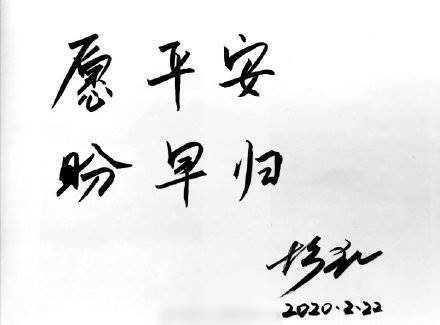 愿平安
盼早归
2020.2.22